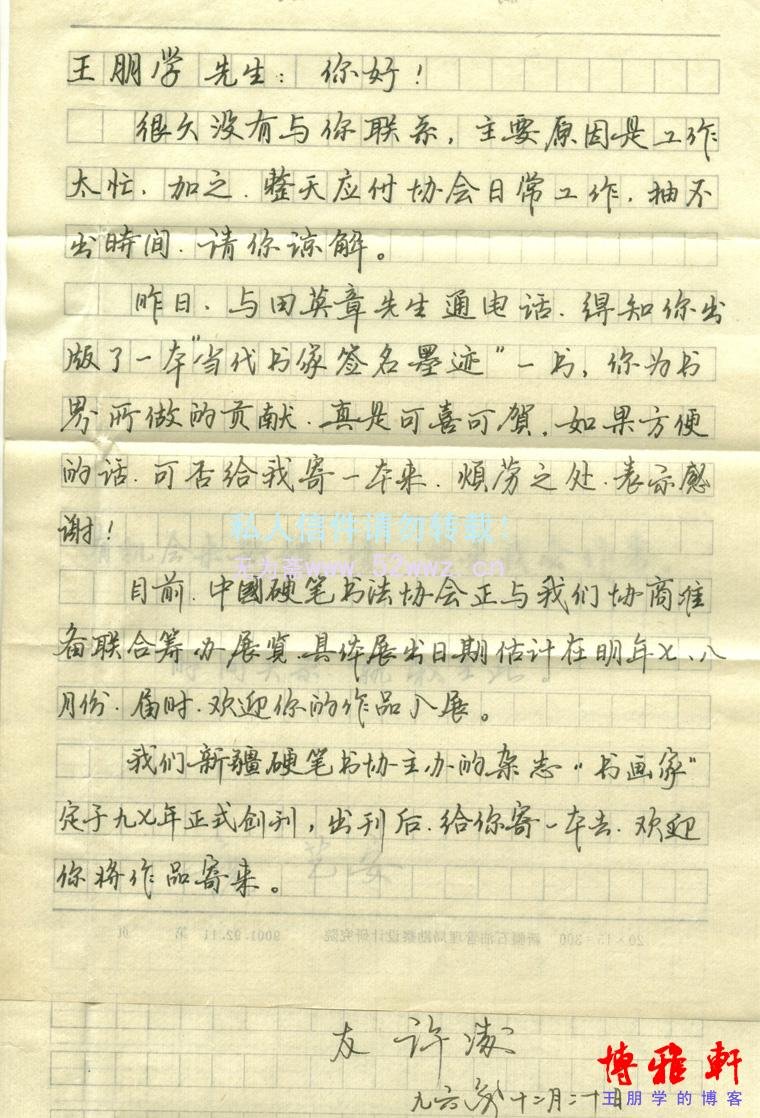 王朋学先生：你好！
很久没有与你联系，主要原因是工作
太忙．加之．整天应付协会日常工作．抽不
出時间．请你谅解。
昨日．与田英章先生通电话．得知你出
版了一本"当代书家签名墨迹"一书，你为书
界所做的贡献．真是可喜可贺．如果方便
的话．可否给我寄一本来．烦劳之处．表示感
谢！
私人信件请勿转载！
无为斋www.52wwz.cn
目前．中國硬笔书法协会正与我们协商准
备联合筹办展览．具体展出日期估计在明年七、八
月份．届时．欢迎你的作品入展。
我们新疆硬笔书协主办的杂志"书画家"
定于九七年正式创刊，出刊后．给你寄一本去．欢迎
你将作品寄来。
20×15=300 新疆石油管理局勘察设计研究院 9001.92.11 第 页
友 许
九六 十二月二十日
博雅軒
王朋学的博客